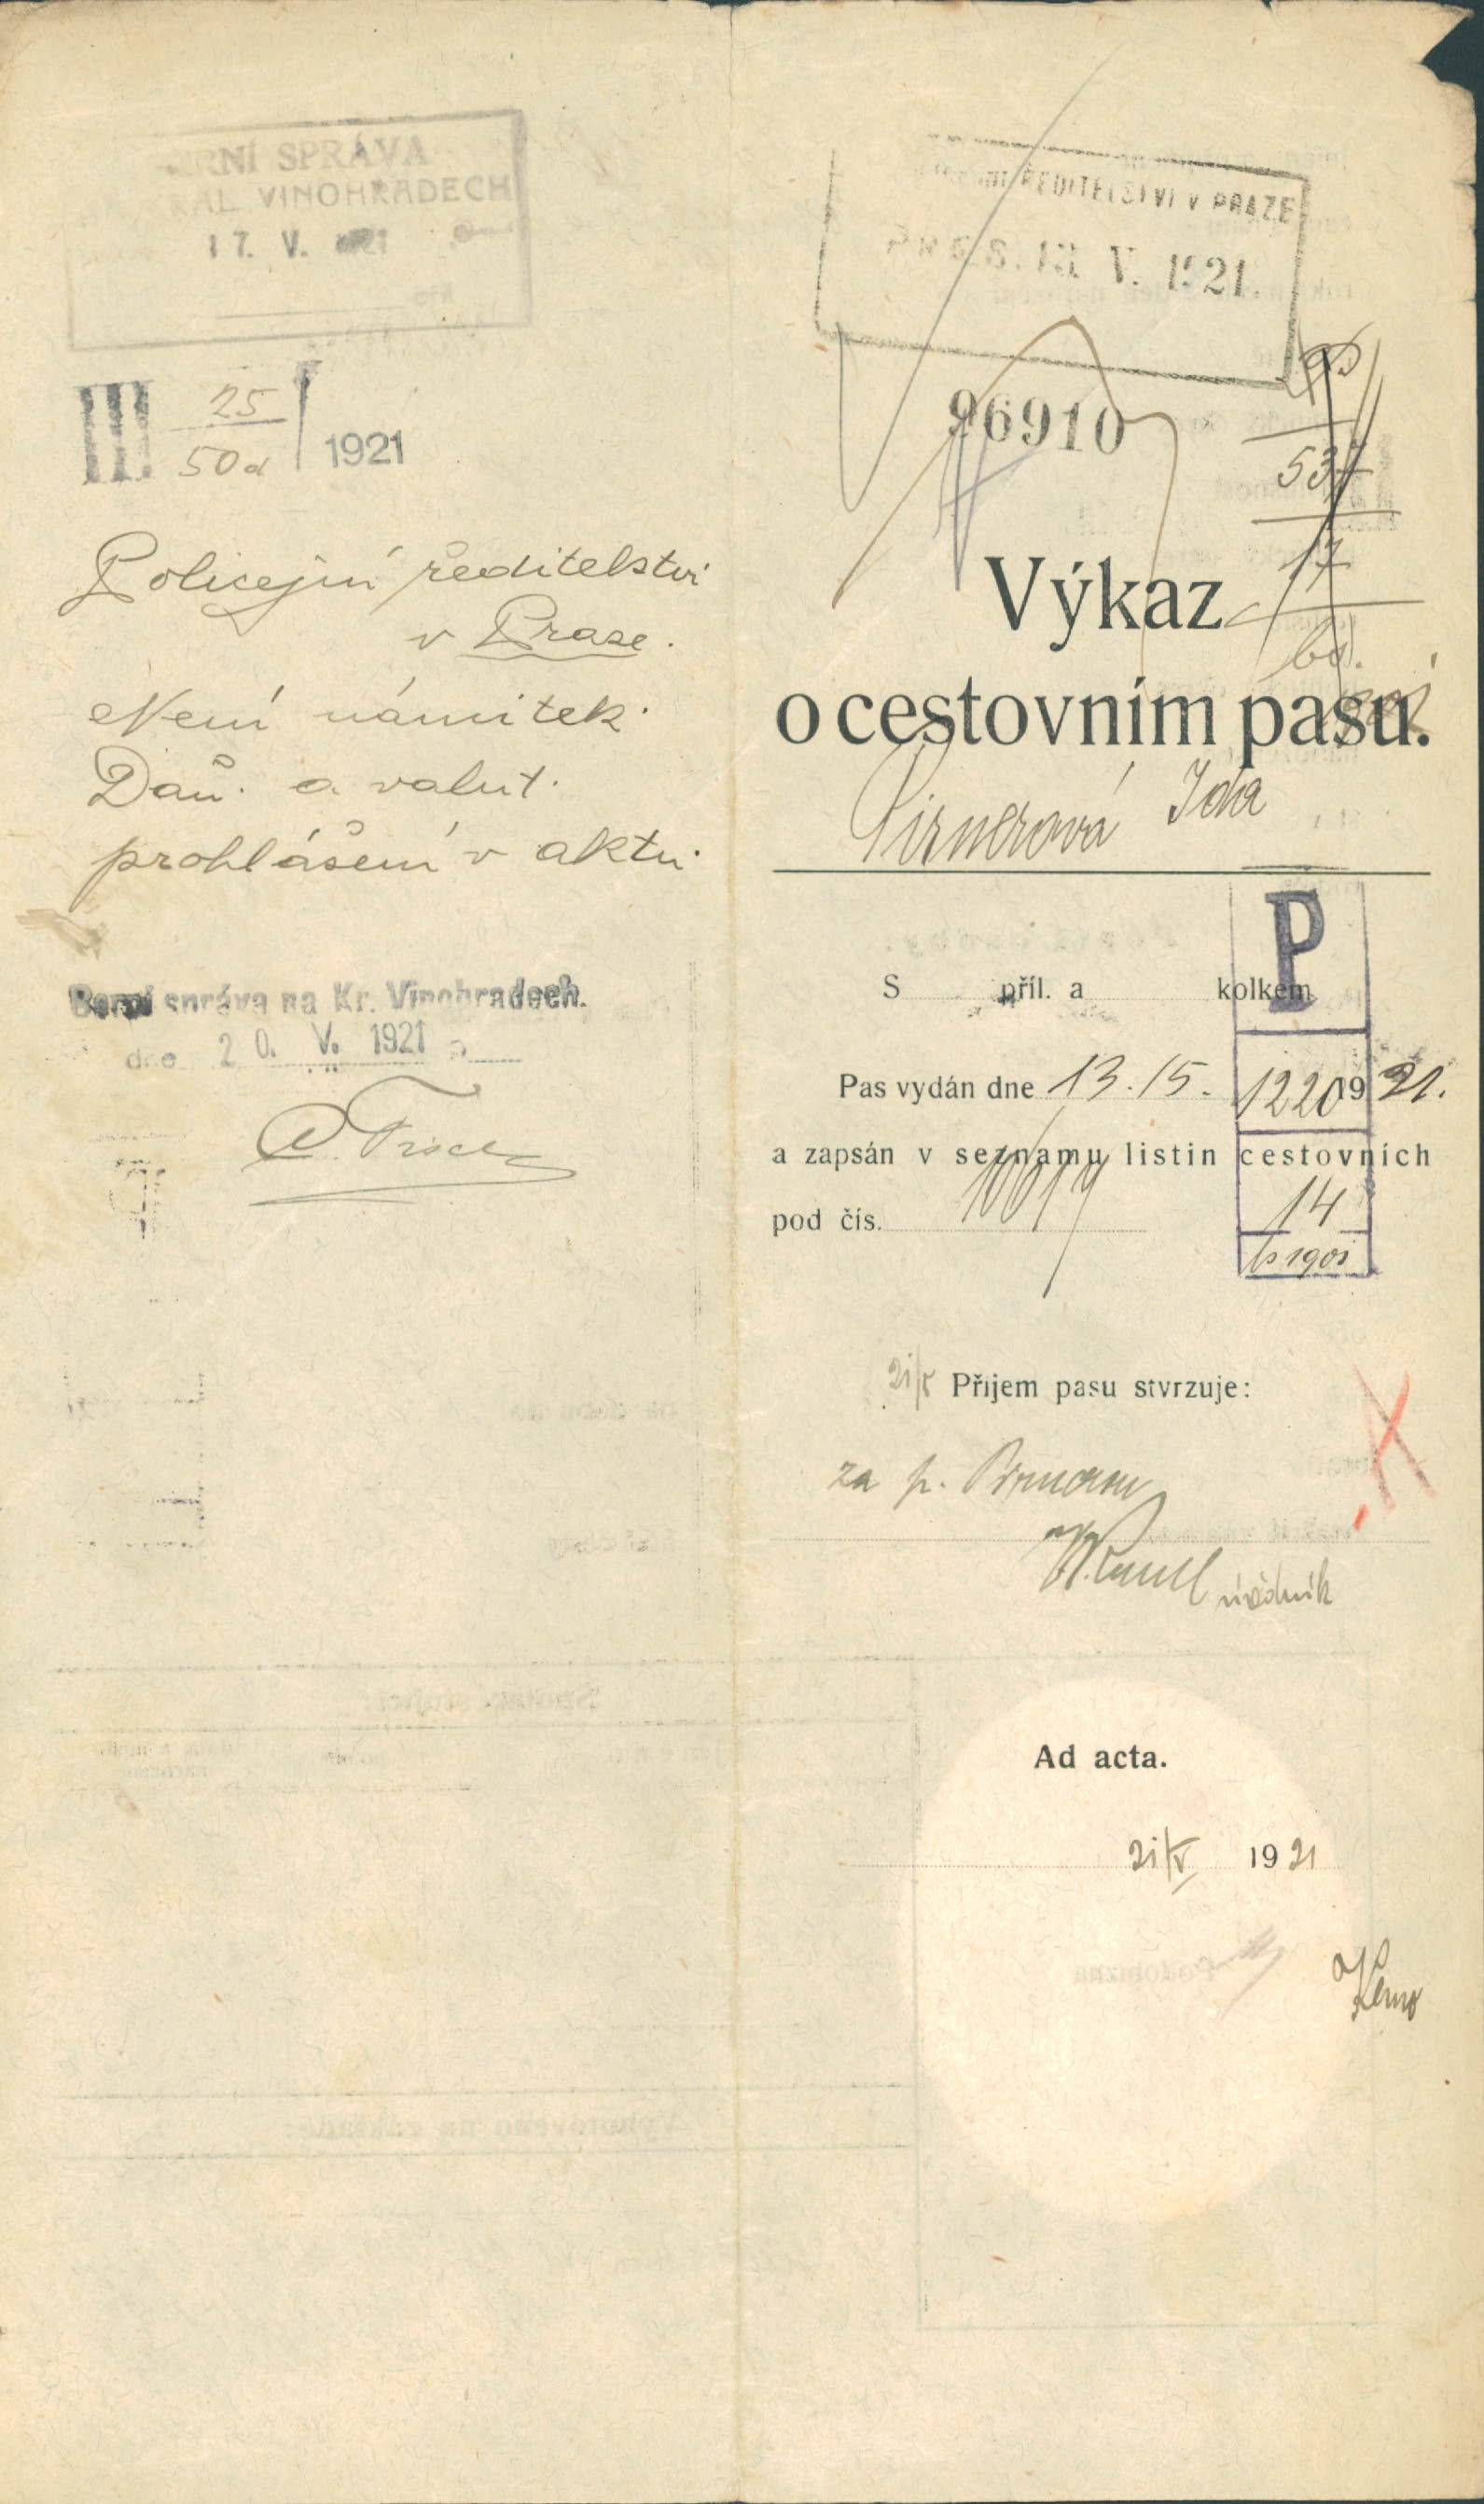 SPRÁVA
VINOHRADECH
17. V. 1921
III. 25/50a 1921
Policejní ředitelství
v Praze.
Není námitek.
Daň. a valut.
prohlášení v aktu.
Berní správa na Kr. Vinohradech.
dne 20. V. 1921
ŘEDITELSTVÍ V PRAZE
V. 1921.
96910
537
17
Výkaz
o cestovním pasu.
Pirnerová Ida
P
S příl. a kolkem
Pas vydán dne 13. /5. 1921.
1220
a zapsán v seznamu listin cestovních
pod čís. 10019
14
21/V Příjem pasu stvrzuje:
za p.
úředník
Ad acta.
21/V 1921
Podobizna
Vyhotoveno na základě: